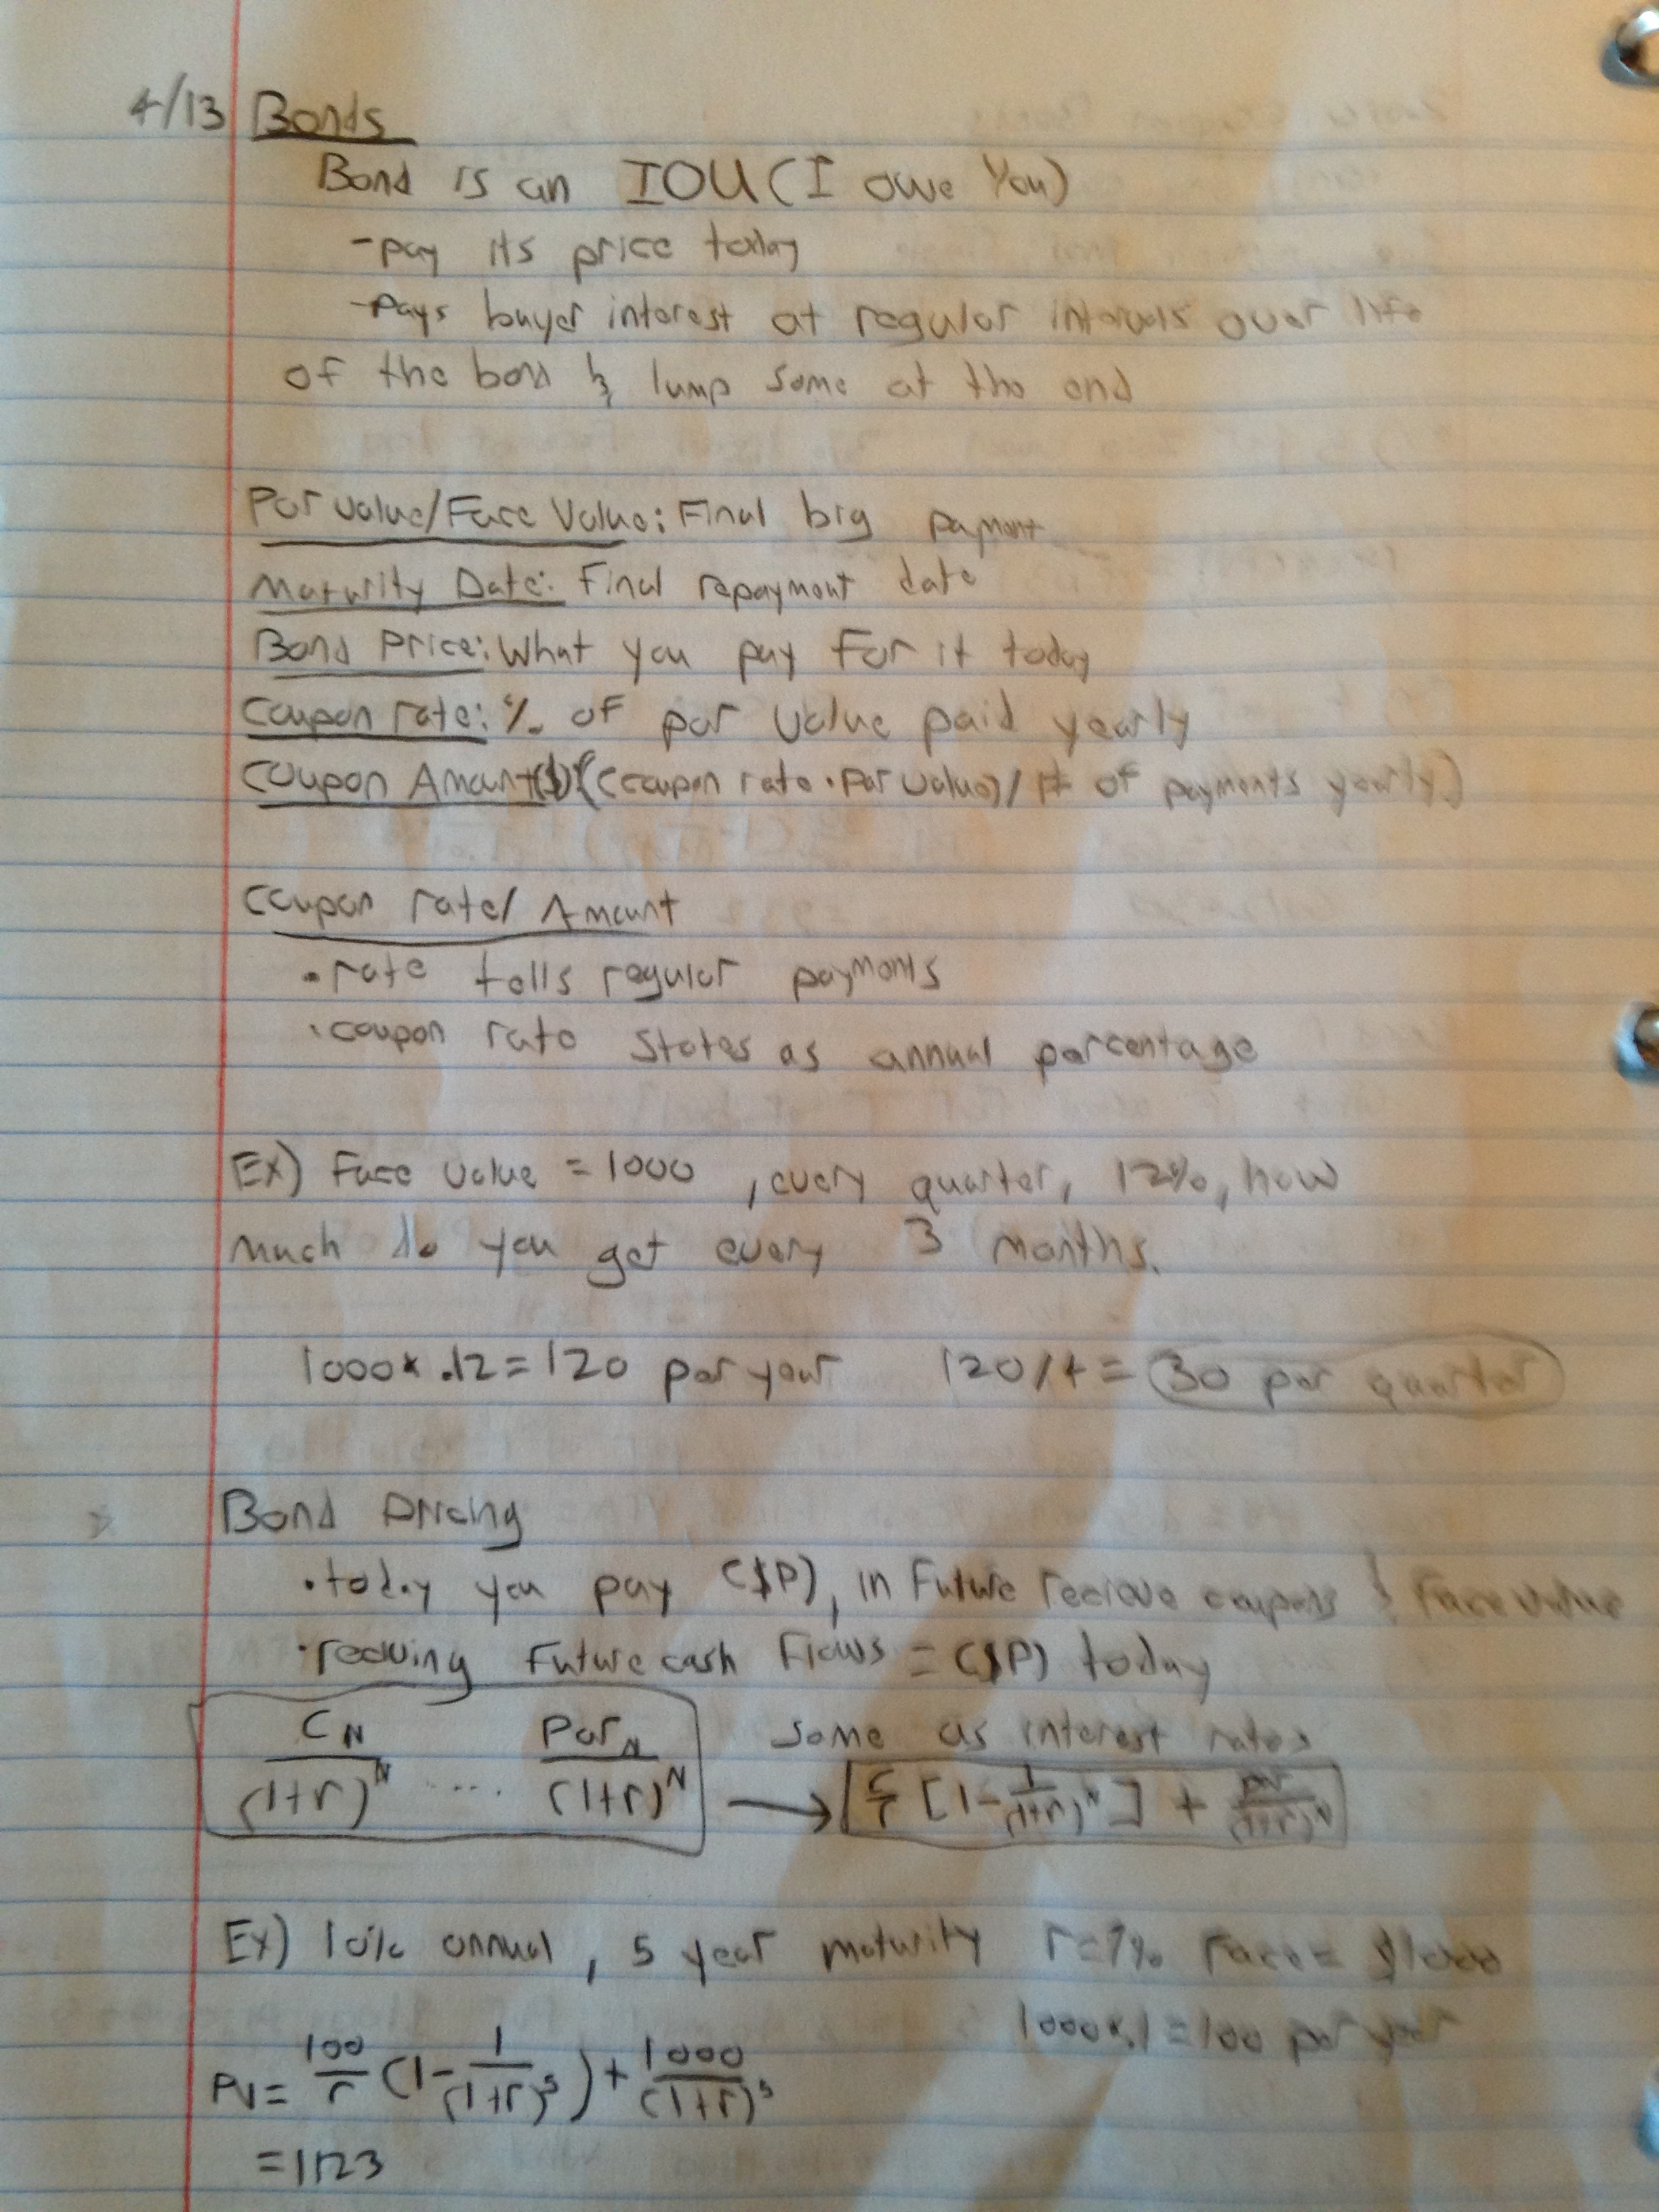 4/13 Bonds
Bond is an IOU (I owe You)
-pay its price today
-Pays buyer interest at regular intervals over life
of the bond & lump some at the end
Par Value/Face Value: Final big payment
Maturity Date: Final repayment date
Bond Price: What you pay for it today
Coupon rate: % of par value paid yearly
Coupon Amount($): ((coupon rate · Par value) / # of payments yearly)
Coupon rate/ Amount
• rate tells regular payments
• coupon rate states as annual percentage
Ex) Face value = 1000, every quarter, 12%, how
much do you get every 3 months.
1000 x .12 = 120 per year 120/4 = 30 per quarter
Bond Pricing
• today you pay ($P), in future recieve coupons & Face value
• reciving future cash flows = ($P) today
C_N/(1+r)^N .... Par_N/(1+r)^N same as interest rates
→ C/r [1 - 1/(1+r)^N] + par/(1+r)^N
Ex) 10% annual, 5 year maturity r=7% Face = $1000
1000 x .1 = 100 per year
PV = 100/r (1 - 1/(1+r)^5) + 1000/(1+r)^5
= 1123